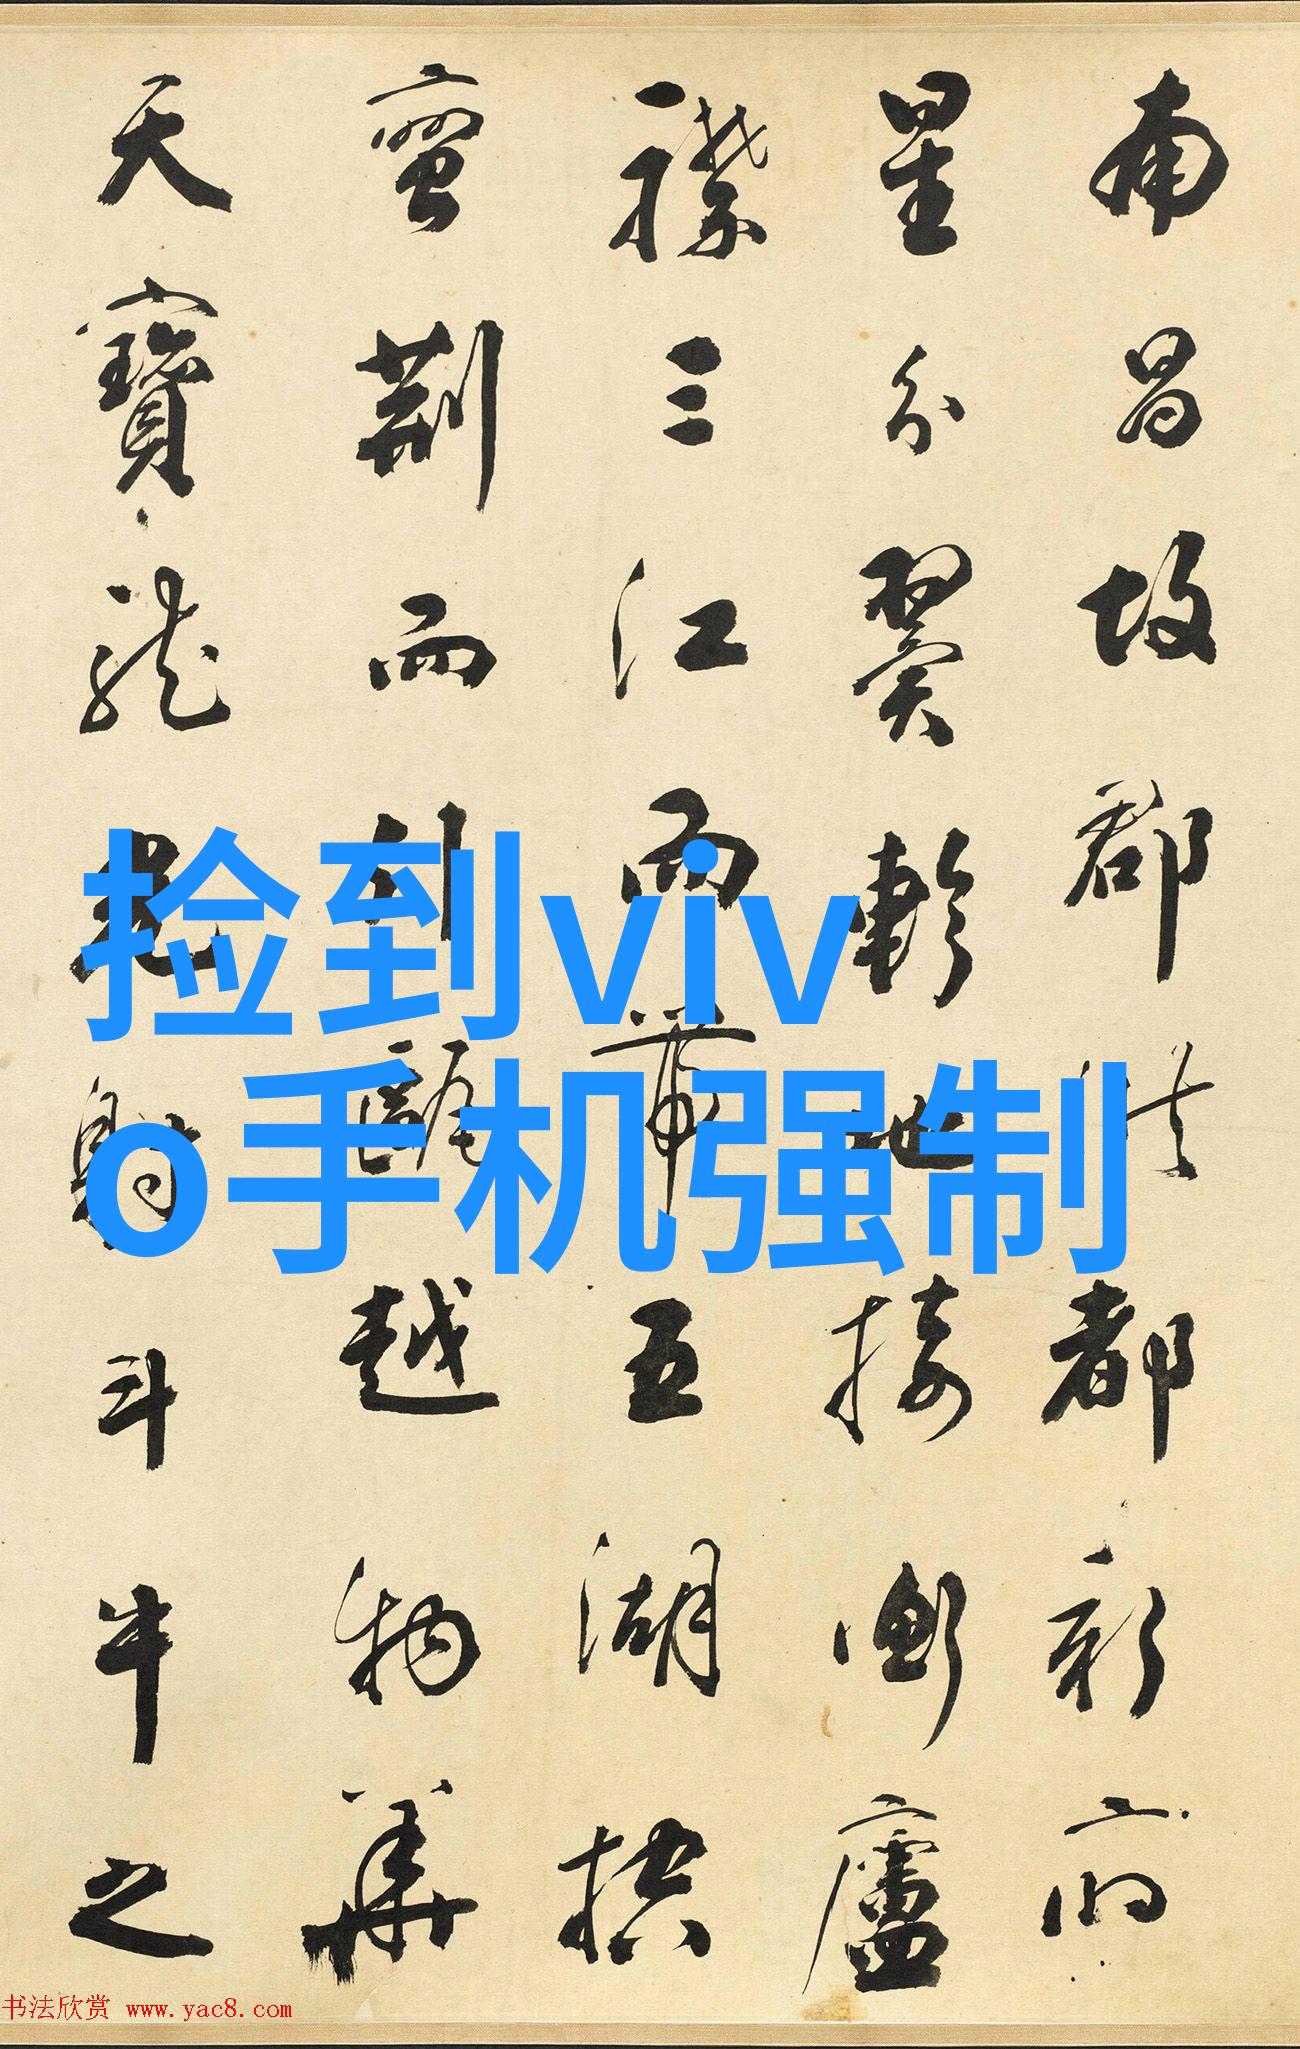 南昌故郡洪都新府
星分翼軫地接衡廬
襟三江而帶五湖控
蠻荊而引甌越物華
天寶龍光射斗牛之
捡到viv
o手机强制
书法欣赏 www.yac8.com